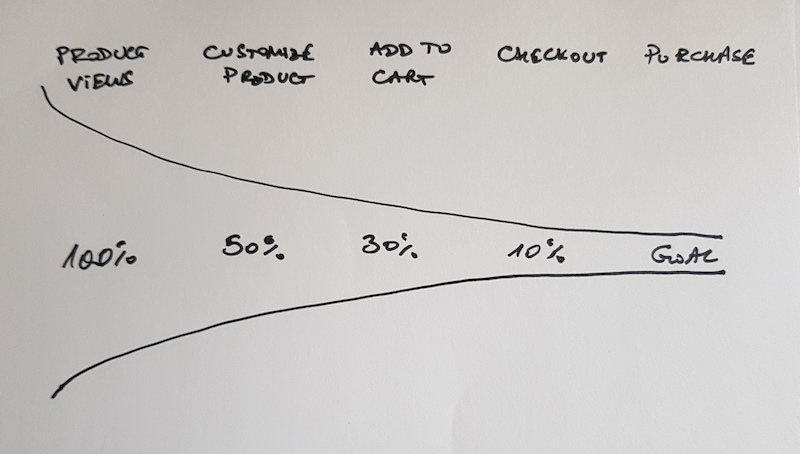 PRODUCT VIEWS
CUSTOMIZE PRODUCT
ADD TO CART
CHECKOUT
PURCHASE
100%
50%
30%
10%
GOAL